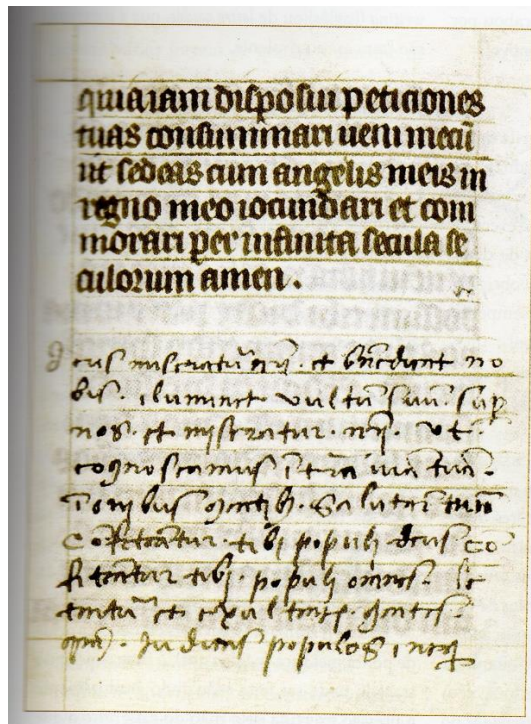 quia iam disposui peticiones
tuas consummari ueni mecū
ut sedeas cum angelis meis in
regno meo iocundari et com
morari per infinita secula se
culorum amen.
Deus miseratur nr̄i. et bn̄edicat no
bis. iluminet vultū suū. sup
nos. et misereatur. nr̄i. vt.
cognoscamus ī terra uiā tuā.
ī omibus gentib. Salutar tuū
Cōfiteātur tibi populi deus cō
fiteātur tibi. populi omnes. le
tentur et exultent. gentes.
qm̄. Judicas populos ineq